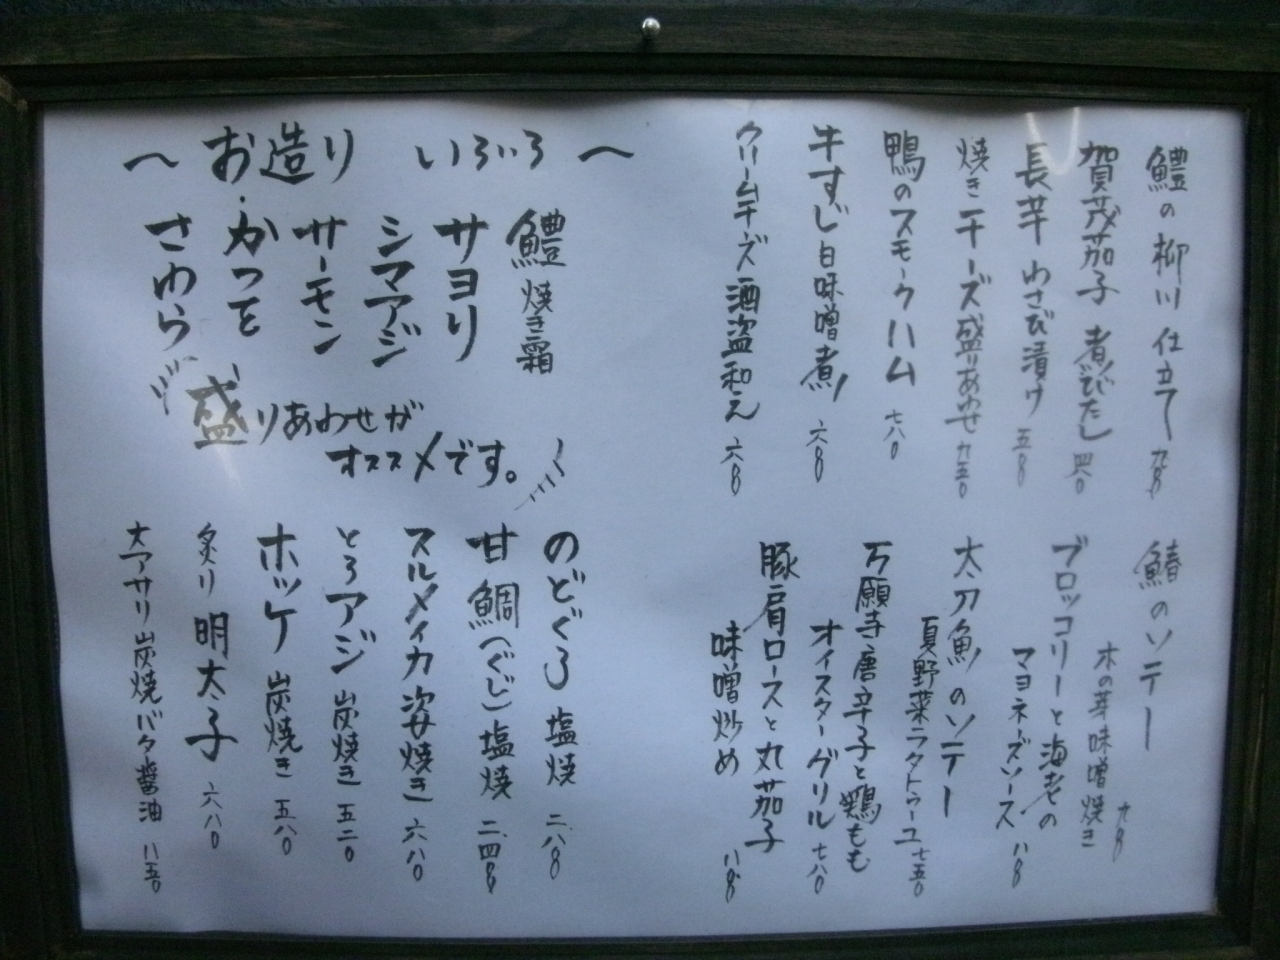 鱧の柳川仕立て 九〇〇
賀茂茄子 煮びたし 四八〇
長芋わさび漬け 五〇〇
焼きチーズ盛りあわせ 九五〇
鴨のスモークハム 七八〇
牛すじ白味噌煮 六〇〇
クリームチーズ酒盗和え 六〇〇
鰆のソテー
木の芽味噌焼き 九〇〇
ブロッコリーと海老の
マヨネーズソース 八〇〇
太刀魚のソテー
夏野菜ラタトゥーユ 七五〇
万願寺唐辛子と鶏もも
オイスターグリル 七八〇
豚肩ロースと丸茄子
味噌炒め 八〇〇
〜お造り いろいろ〜
鱧 焼き霜
サヨリ
シマアジ
サーモン
かつを
さわら
盛りあわせが
オススメです。
のどぐろ 塩焼 二、八〇〇
甘鯛(ぐじ)塩焼 二、四〇〇
スルメイカ姿焼き 六八〇
とろアジ 炭焼き 五二〇
ホッケ 炭焼き 五八〇
炙り 明太子 六八〇
大アサリ 炭焼バター醤油 八五〇